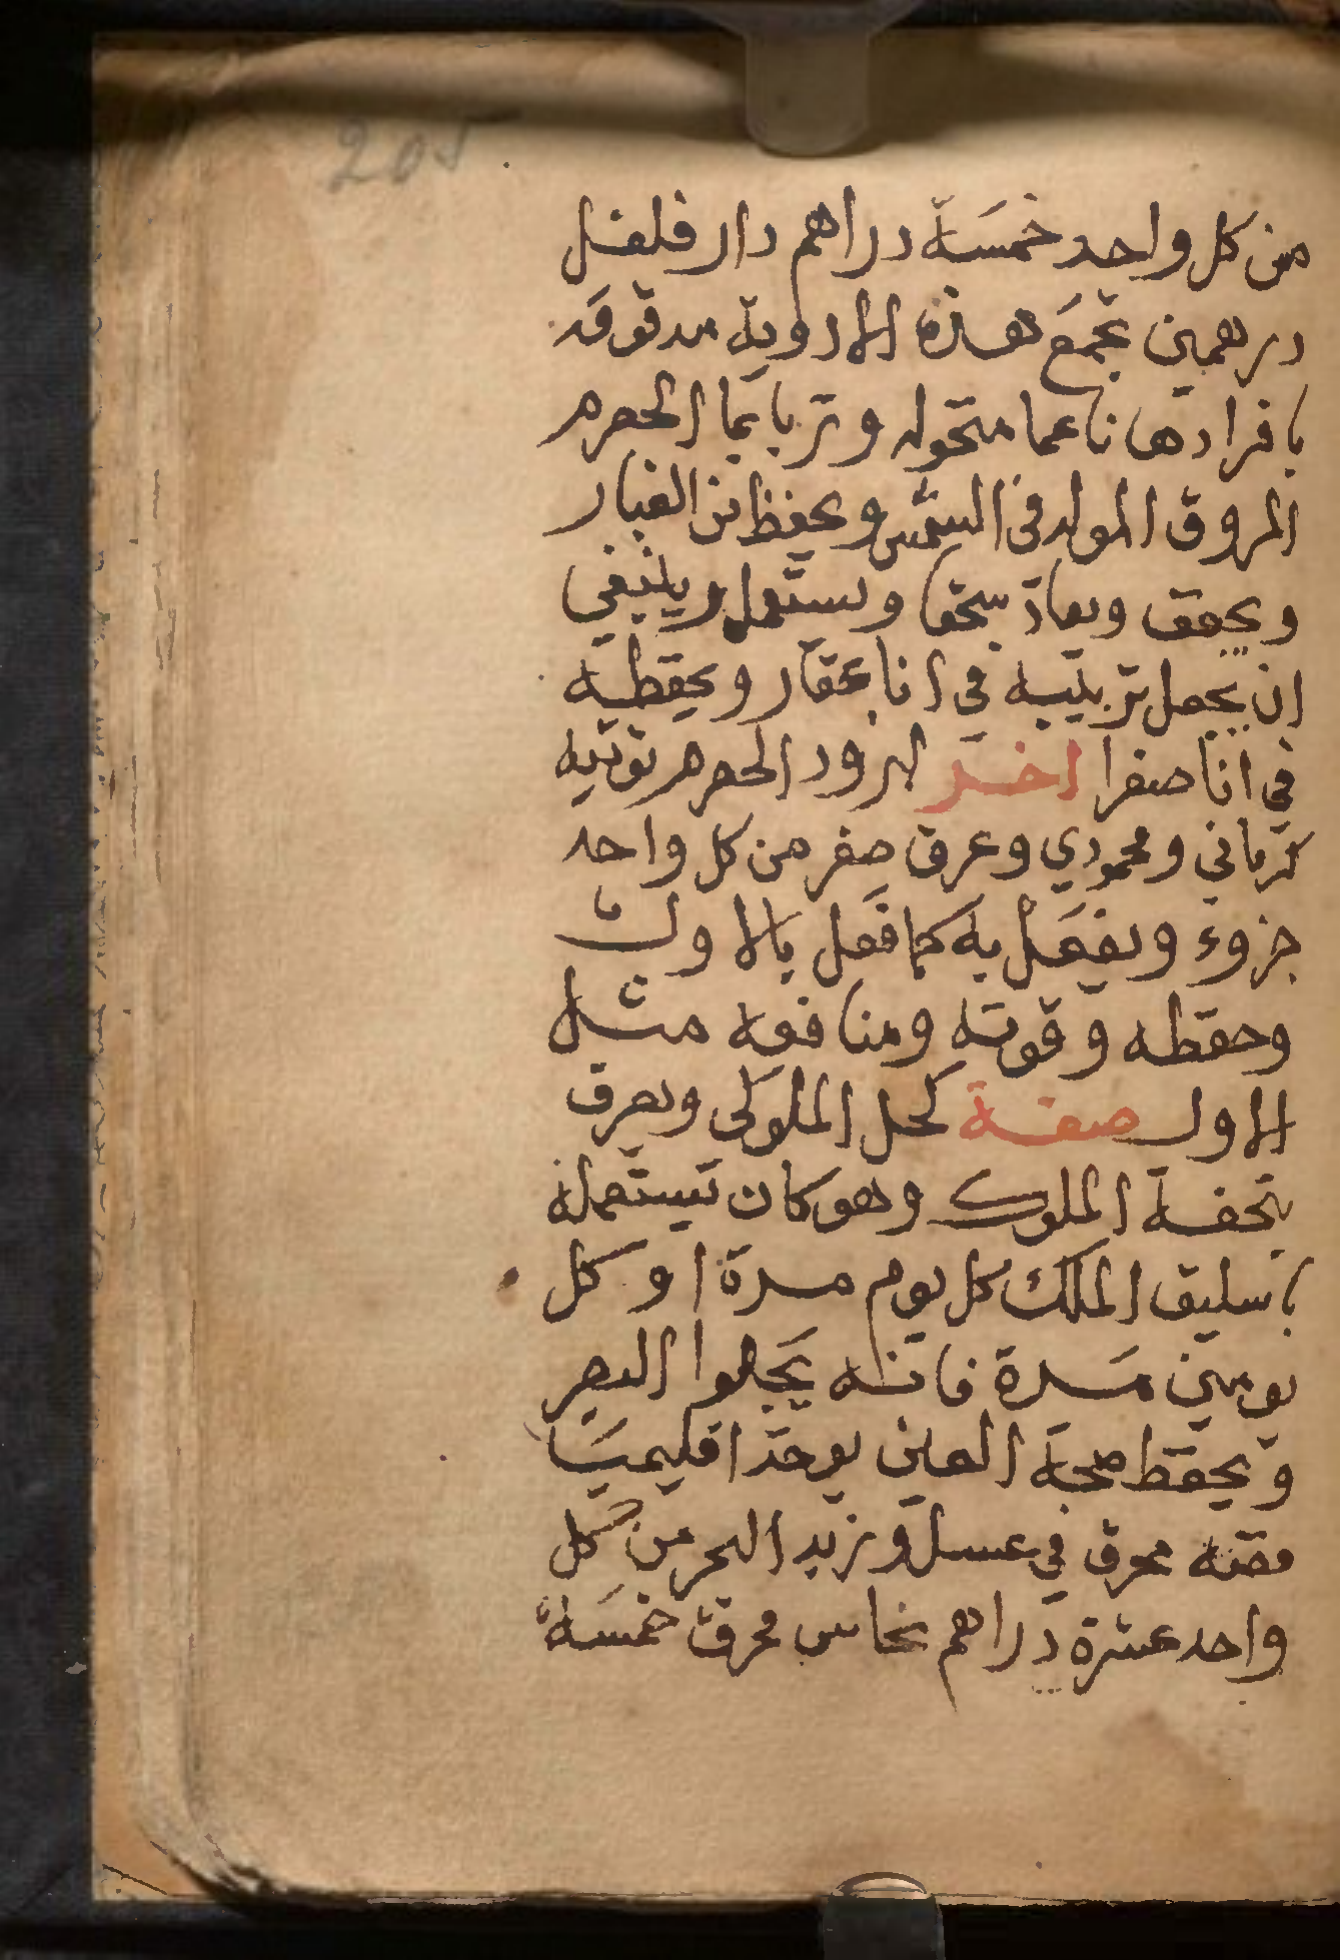 205
من كل واحد خمسة دراهم دار فلفل
درهمين تجمع هذه الادوية مدقوقه
بافرادها ناعما منخوله وتربا بما الحصرم
المروق المولد في الشمس ويحفظ من الغبار
ويجفف ويعاد سحقا ويستعمل وينبغي
ان يجعل تربيبه في انا عقار ويحفظيه
في انا صفرا اخر لبرود الحصرم توتيه
كرماني ومحمودي وعرق صفر من كل واحد
جزوء ويفعل به كما فعل بالاول
وحفظه وقوته ومنافعه مثل
الاول صفة كحل الملوكي ويعرف
بتحفة الملوك وهو كان تيستعمله
باسليق الملك كل يوم مرة او كل
يومين مرة فانه يجلوا البصر
ويحفظ صحة العين يوخذ اقليميا
فضه محرق في عسل وزبد البحر من كل
واحد عشرة دراهم نحاس محرق خمسة